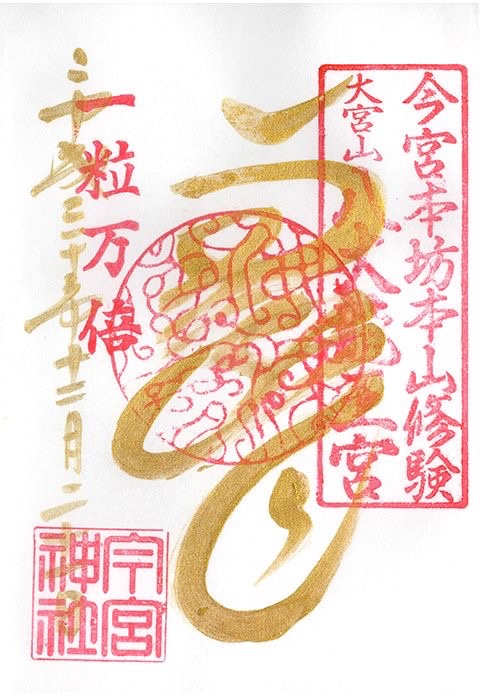 今宮本坊本山修験
大宮山 八大龍王宮
龍
一粒万倍
三十年十二月二
今宮神社